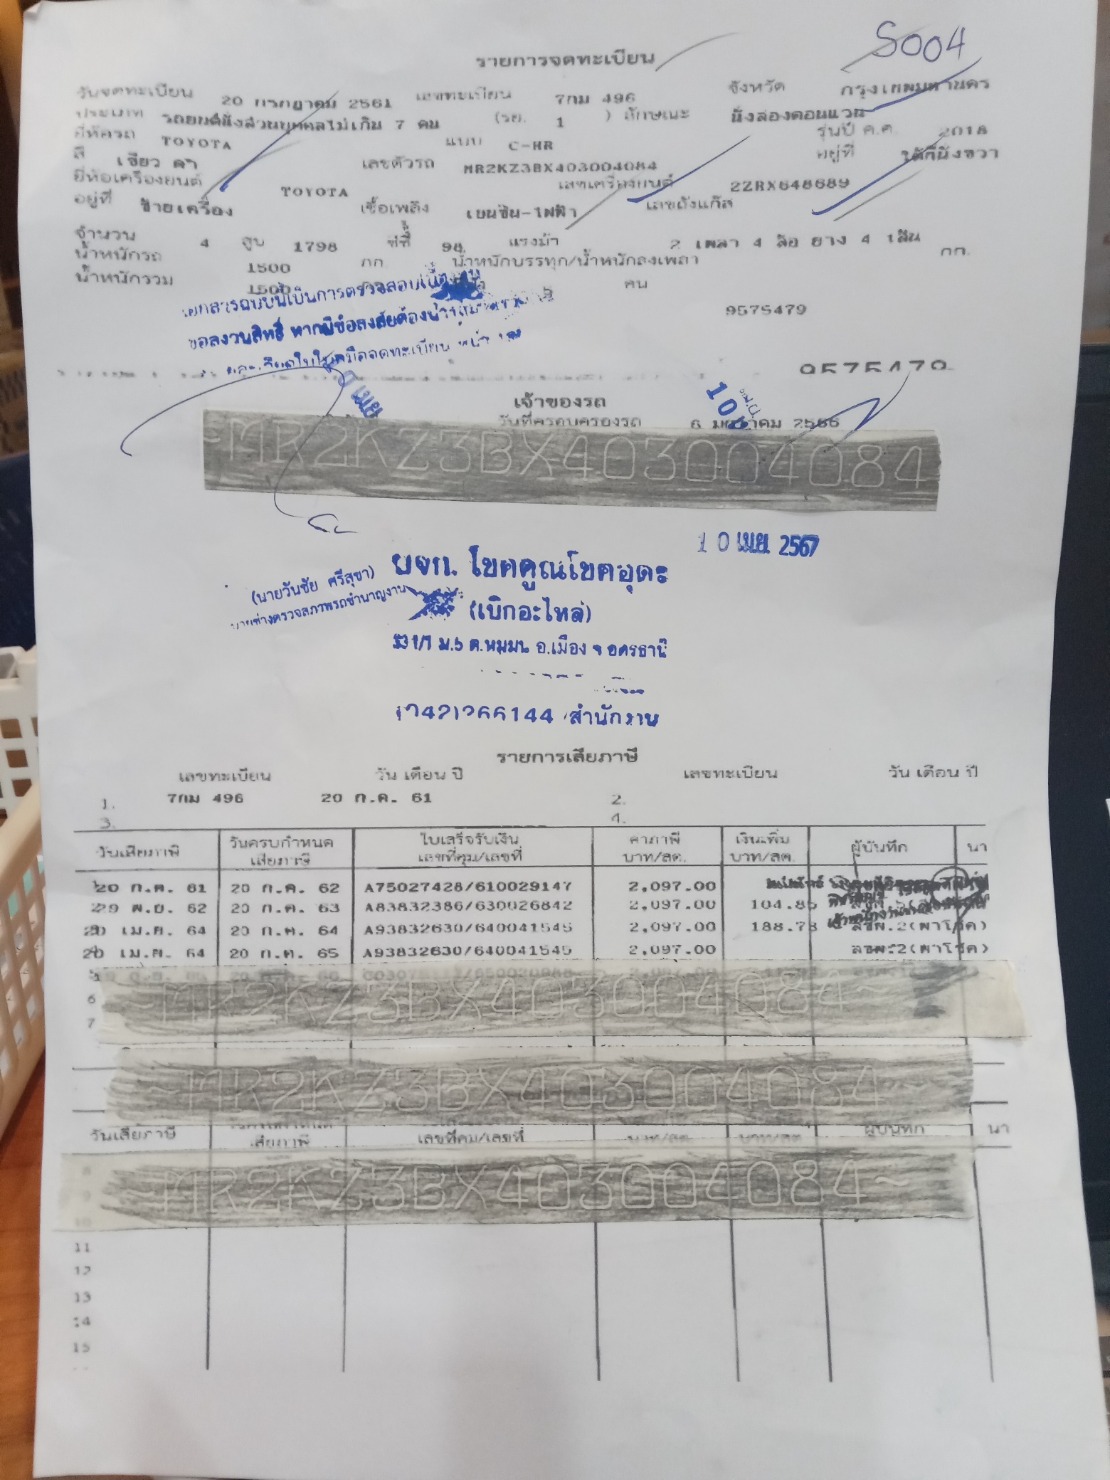 S004
รายการจดทะเบียน
วันจดทะเบียน 20 กรกฎาคม 2561 เลขทะเบียน 7กม 496 จังหวัด กรุงเทพมหานคร
ประเภท รถยนต์นั่งส่วนบุคคลไม่เกิน 7 คน (รย. 1 ) ลักษณะ นั่งสองตอนแวน
ยี่ห้อรถ TOYOTA แบบ C-HR รุ่นปี ค.ศ. 2018
สี เขียว ดำ เลขตัวรถ MR2KZ3BX403004084 อยู่ที่ ใต้ที่นั่งขวา
ยี่ห้อเครื่องยนต์ TOYOTA เลขเครื่องยนต์ 2ZRX648689
อยู่ที่ ซ้ายเครื่อง เชื้อเพลิง เบนซิน-ไฟฟ้า เลขถังแก๊ส
จำนวน 4 สูบ 1798 ซีซี 98 แรงม้า 2 เพลา 4 ล้อ ยาง 4 เส้น
น้ำหนักรถ 1500 กก. น้ำหนักบรรทุก/น้ำหนักลงเพลา กก.
น้ำหนักรวม 1500 5 คน
9575479
เอกสารฉบับนี้เป็นการตรวจสอบเบื้องต้น
ขอสงวนสิทธิ์ หากมีข้อสงสัยต้อง
9575479
เจ้าของรถ
10
วันที่ครอบครองรถ 6 มกราคม 2566
~MR2KZ3BX403004084
10 เม.ย. 2567
(นายวันชัย ศรีสุขา)
นายช่างตรวจสภาพรถชำนาญงาน
บจก. โชคคูณโชคอุดะ
(เบิกอะไหล่)
331/1 ม.5 ต.หมูม่น อ.เมือง จ อุดรธานี
(042)266144 สำนักงาน
รายการเสียภาษี
เลขทะเบียน วัน เดือน ปี เลขทะเบียน วัน เดือน ปี
1. 7กม 496 20 ก.ค. 61 2.
3. 4.
วันเสียภาษี วันครบกำหนดเสียภาษี ใบเสร็จรับเงิน เลขที่คุม/เลขที่ ค่าภาษี บาท/สต. เงินเพิ่ม บาท/สต. ผู้บันทึก นา
20 ก.ค. 61 20 ก.ค. 62 A75027428/610029147 2,097.00
29 พ.ย. 62 20 ก.ค. 63 A83832386/630026842 2,097.00 104.85
20 เม.ย. 64 20 ก.ค. 64 A93832630/640041545 2,097.00 188.73 ลชพ.2(พาโชค)
20 เม.ย. 64 20 ก.ค. 65 A93832630/640041545 2,097.00 ลชพ.2(พาโชค)
5
6
~MR2KZ3BX403004084~
7
~MR2KZ3BX403004084~
วันเสียภาษี เสียภาษี เลขที่คุม/เลขที่ บาท/สต. บาท/สต. ผู้บันทึก นา
8
~MR2KZ3BX403004084~
9
10
11
12
13
14
15